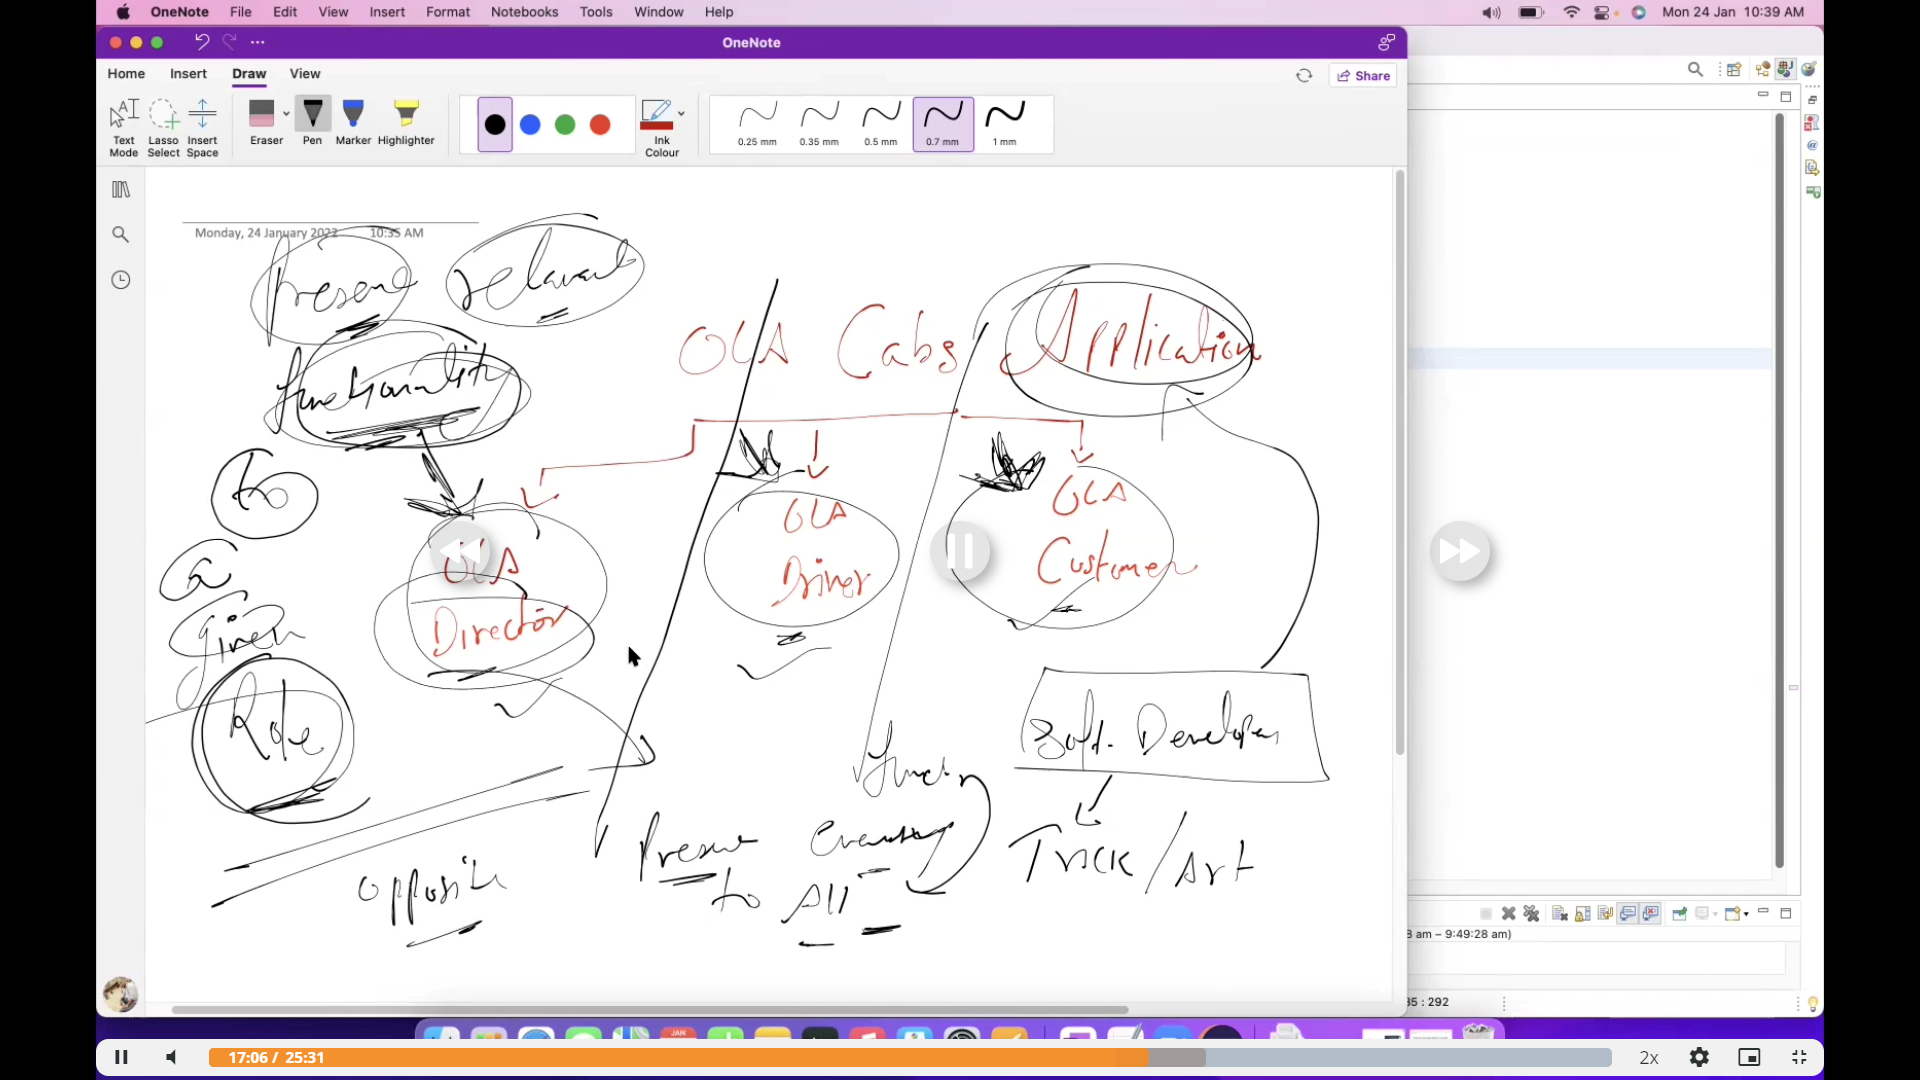 OneNote File Edit View Insert Format Notebooks Tools Window Help Mon 24 Jan 10:39 AM
OneNote
Home Insert Draw View Share
Text Mode Lasso Select Insert Space Eraser Pen Marker Highlighter Ink Colour 0.25 mm 0.35 mm 0.5 mm 0.7 mm 1 mm
Monday, 24 January 2022 10:35 AM
Present relavant
OLA Cabs Application
functionality
to
OLA Director
OLA Driver
OLA Customer
a
given
Role
Soft. Developer
Present everything
to All
Trick/Art
opposite
8 am – 9:49:28 am)
35 : 292
JAN
17:06 / 25:31 2x